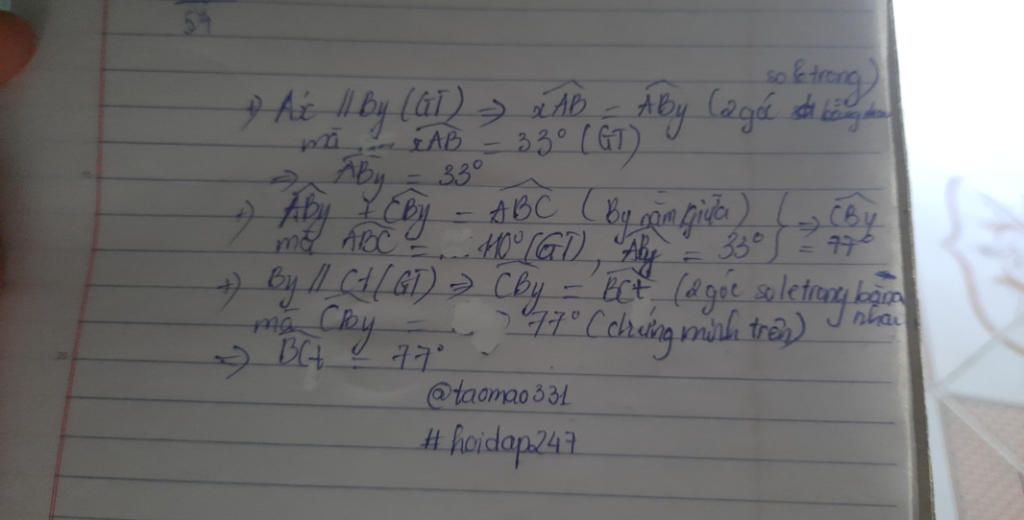 54
so le trong)
+) Ax // By (GT) => xAB = ABy (2 góc bằng
mà xAB = 33° (GT)
=> ABy = 33°
+) ABy + CBy = ABC (By nằm giữa) } => CBy
mà ABC = ... 110° (GT), ABy = 33° } = 77°
+) By // Ct (GT) => CBy = BCt (2 góc so le trong bằng
nhau
mà CBy = 77° (chứng minh trên)
=> BCt = 77°
@taomao331
#hoidap247